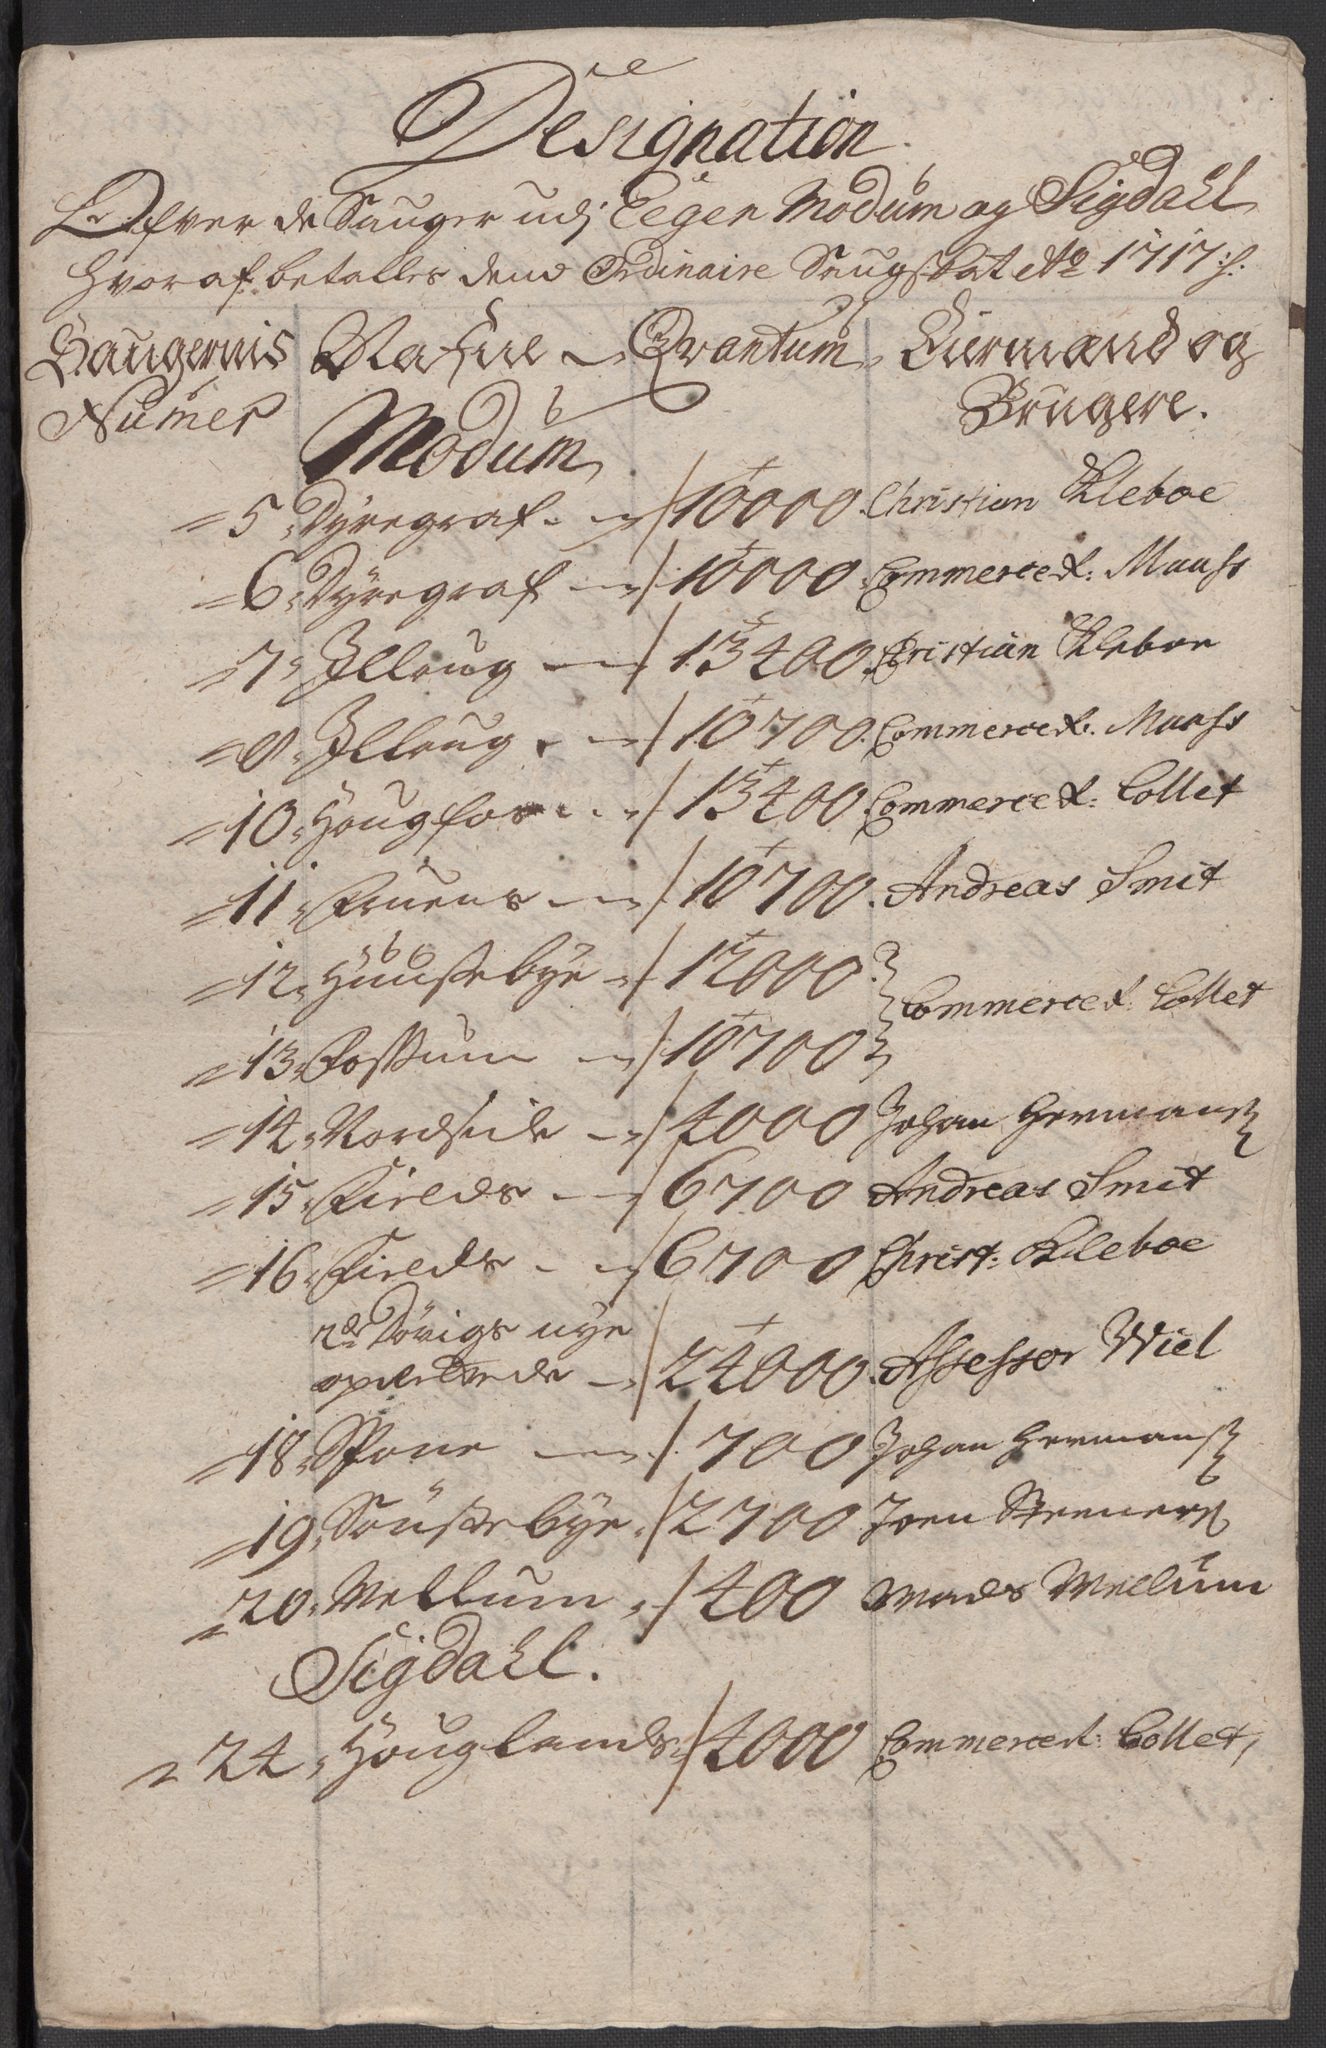 Designation
Ofver de Sauger udj Eegen Modum og Sigdahl
Hvoraf betalles dend Ordinaire Saugskat Ao 1717:/:
Saugernis Nafne - Qvantum Eiermænd og
Numer Brugere.
Modum
5 Dyregraf - 10000 Christian Kleboe
6 Dyregraf - 10000 Commerce R: Maass
7 Illoug - 13400 Christian Kleboe
8 Illoug - 10700 Commerce R: Maass
10 Hougfos - 13400 Commerce R: Collet
11 Fruens - 10700 Andreas Smit
12 Huussebye - 12000
Commerce R: Collet
13 Fossum - 10700
14 Nordside - 4000 Johan Hermans
15 Fireds - 6700 Andreas Smit
16 Fireds - 6700 Christ: Kleboe
2de Dövigs nye
opretede - 24000 Assessor Wiel
18 Spone - 700 Johan Hermans
19 Sönstebye - 2700 Joen Steners
20 Mellum - 400 Mads Mellum
Sigdahl.
24 Houglands 4000 Commerce R: Collet